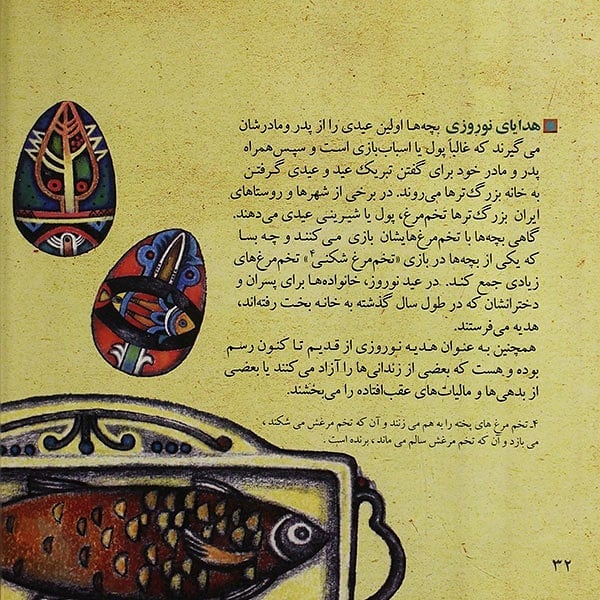 هدایای نوروزی بچه‌ها اولین عیدی را از پدر ومادرشان
می‌گیرند که غالباً پول یا اسباب‌بازی است و سپس‌همراه
پدر و مادر خود برای گفتن تبریک عید و عیدی گرفتن
به خانه بزرگ‌ترها می‌روند. در برخی از شهرها و روستاهای
ایران بزرگ‌ترها تخم‌مرغ، پول یا شیرینی عیدی می‌دهند.
گاهی بچه‌ها با تخم‌مرغ‌هایشان بازی می‌کنند و چه بسا
که یکی از بچه‌ها در بازی «تخم‌مرغ شکنی۴» تخم‌مرغ‌های
زیادی جمع کند. در عید نوروز، خانواده‌ها برای پسران و
دخترانشان که در طول سال گذشته به خانه بخت رفته‌اند،
هدیه می‌فرستند.
همچنین به عنوان هدیه نوروزی از قدیم تا کنون رسم
بوده و هست که بعضی از زندانی‌ها را آزاد می‌کنند یا بعضی
از بدهی‌ها و مالیات‌های عقب‌افتاده را می‌بخشند.
۴ـ تخم مرغ های پخته را به هم می زنند و آن که تخم مرغش می شکند ،
می بازد و آن که تخم مرغش سالم می ماند ، برنده است .
۳۲